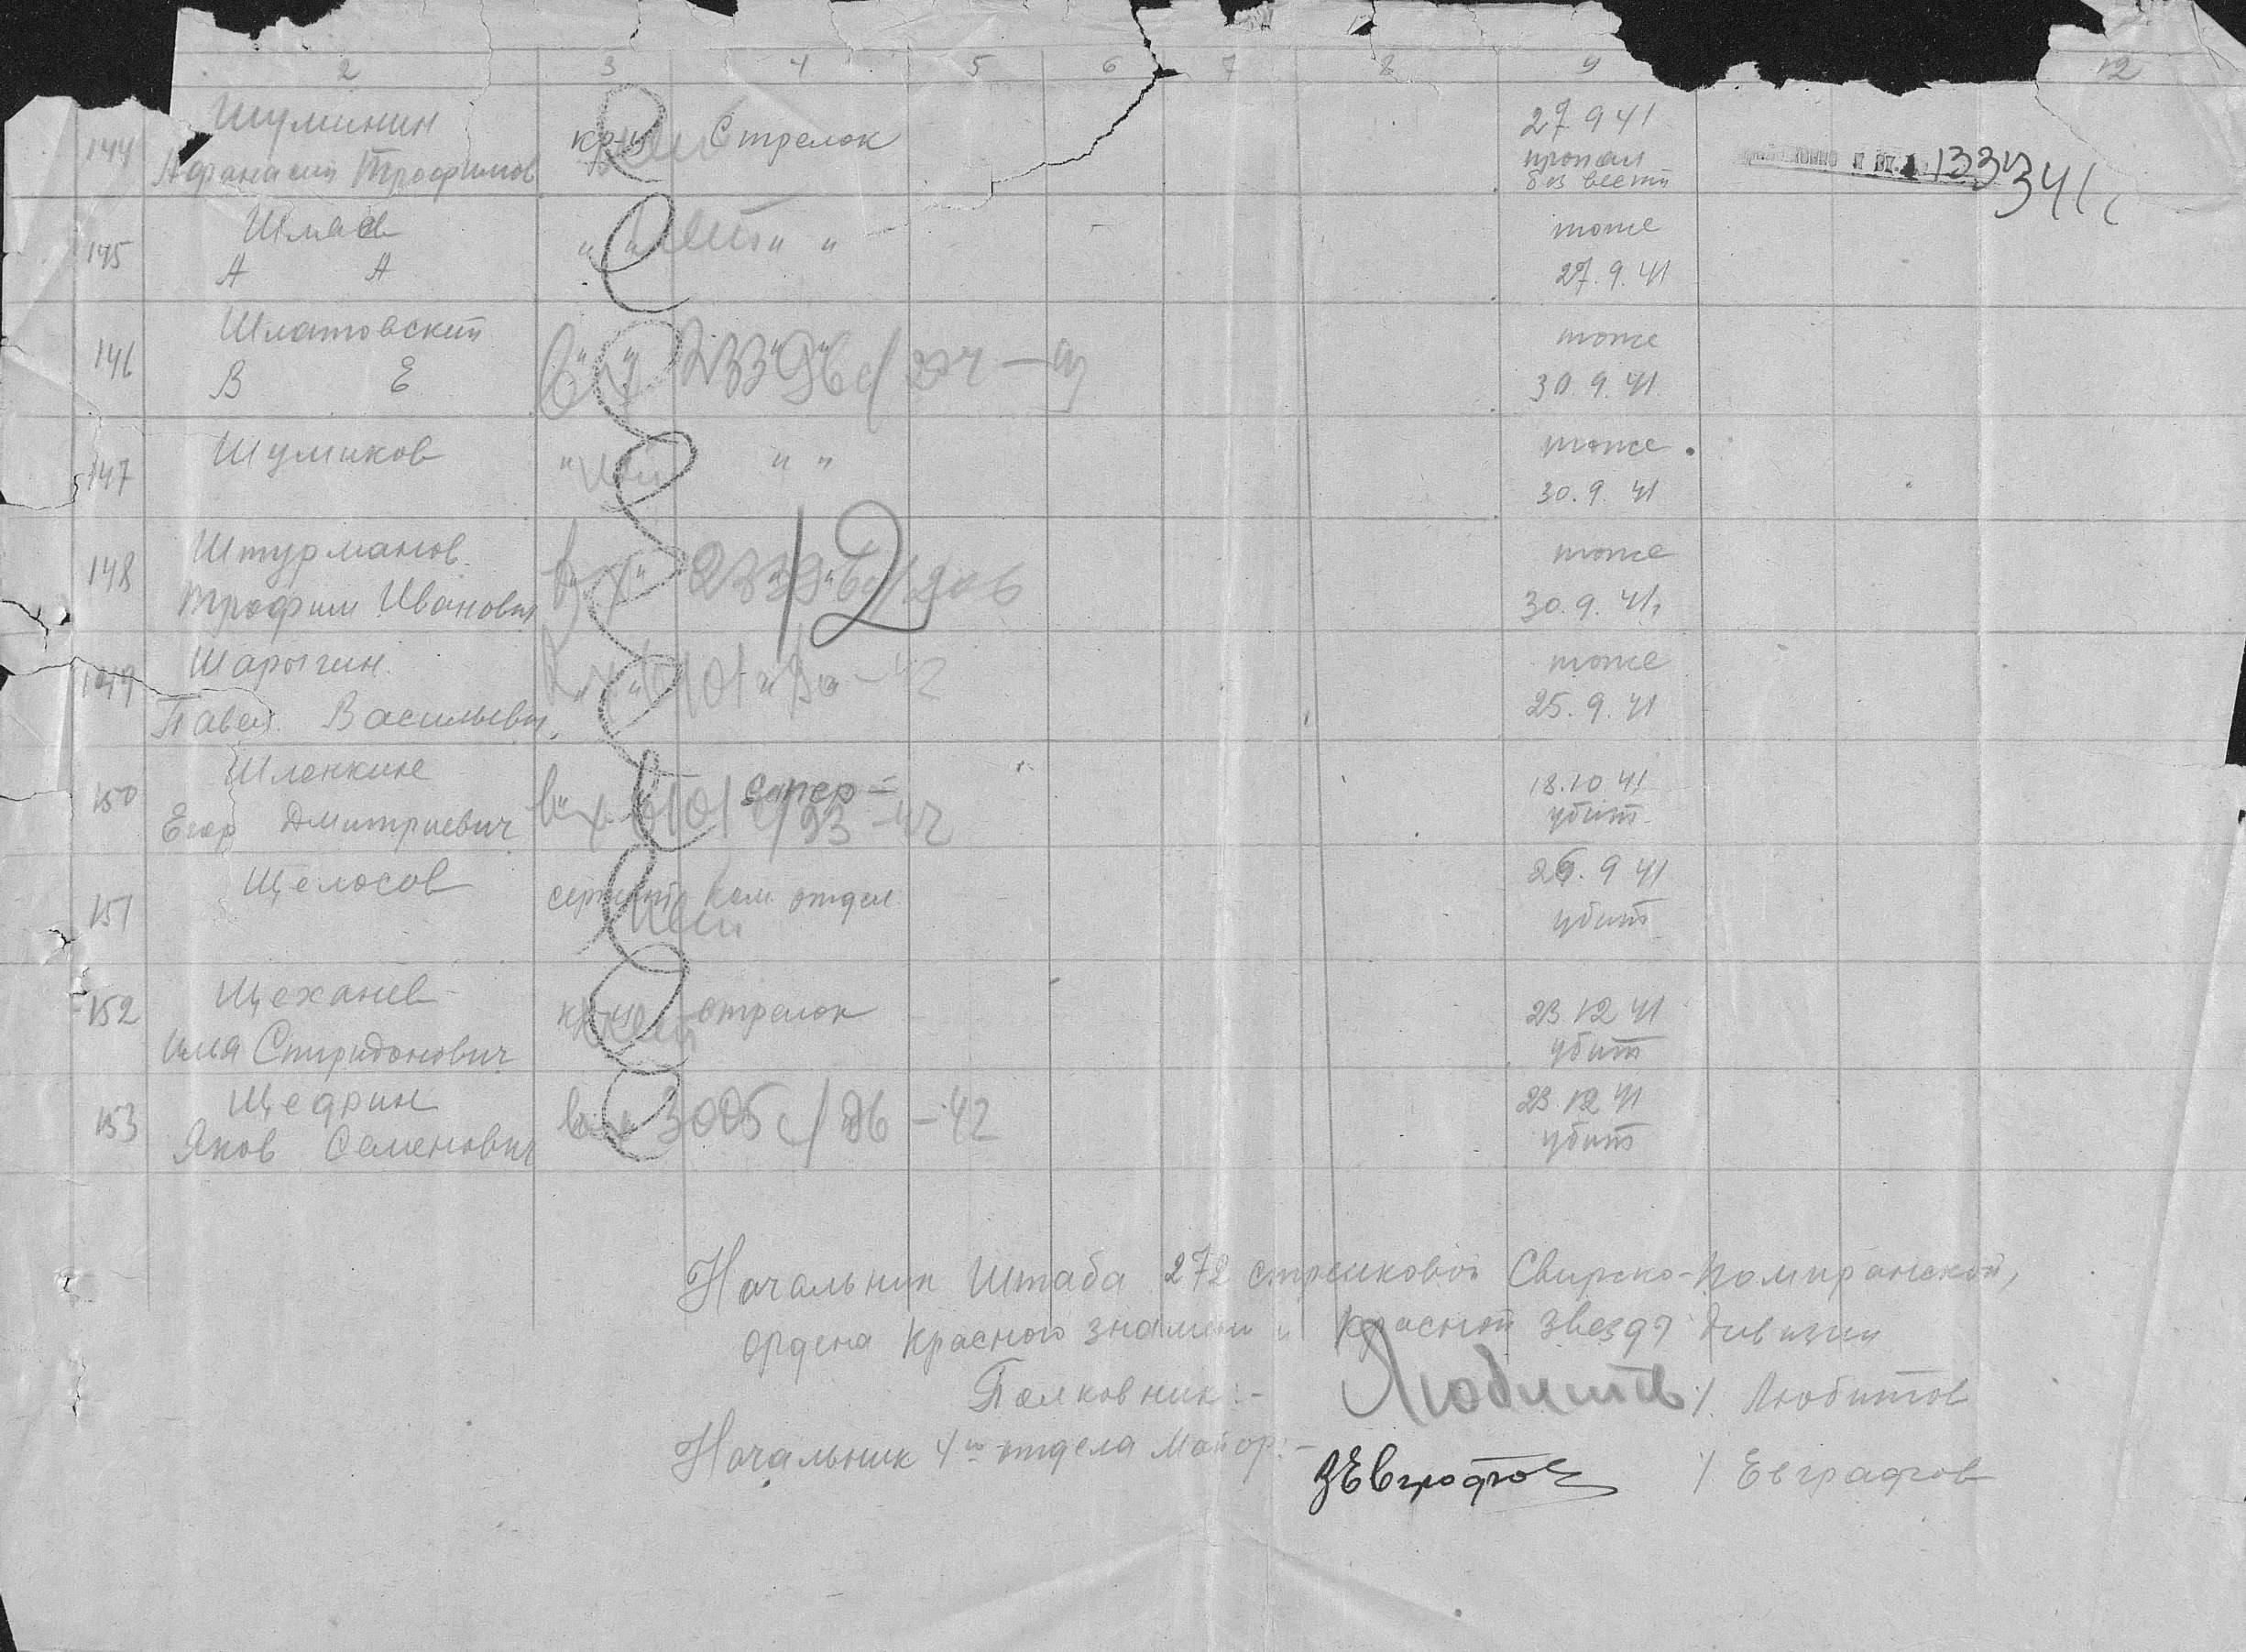 2 3 4 5 6 7 8 9 12
144 Шуминин кр-ц Стрелок 27 9 41
Афанасий Трофимов пропал
без вести
133434с
145 Шмаев " " " " тоже
А А 27.9.41
нет
146 Шлатовский " " " " тоже
В Е 30.9.41
147 Шумиков " " " тоже
30.9.41
148 Штурманов " " " " тоже
Трофим Иванович 30.9.41
12
149 Шарыгин " " " тоже
Павел Васильевич 25.9.41
150 Шленкине " сапер = 18.10 41
Егор Дмитриевич убит
151 Щелосов сержант Ком. отдел 26.9 41
убит
152 Щеханев кр-ц стрелок 23.12 41
Илья Спиридонович убит
153 Щедрин 23 12 41
Яков Семенович убит
вх 3005 с/ 86 - 42
Начальник Штаба 272 стрелковой Свирско-Помиранской,
ордена Красного знамени и Красной Звезды дивизии
Полковник:- Любитов /. Любитов
Начальник 4го отдела Майор:- Евграфов /. Евграфов